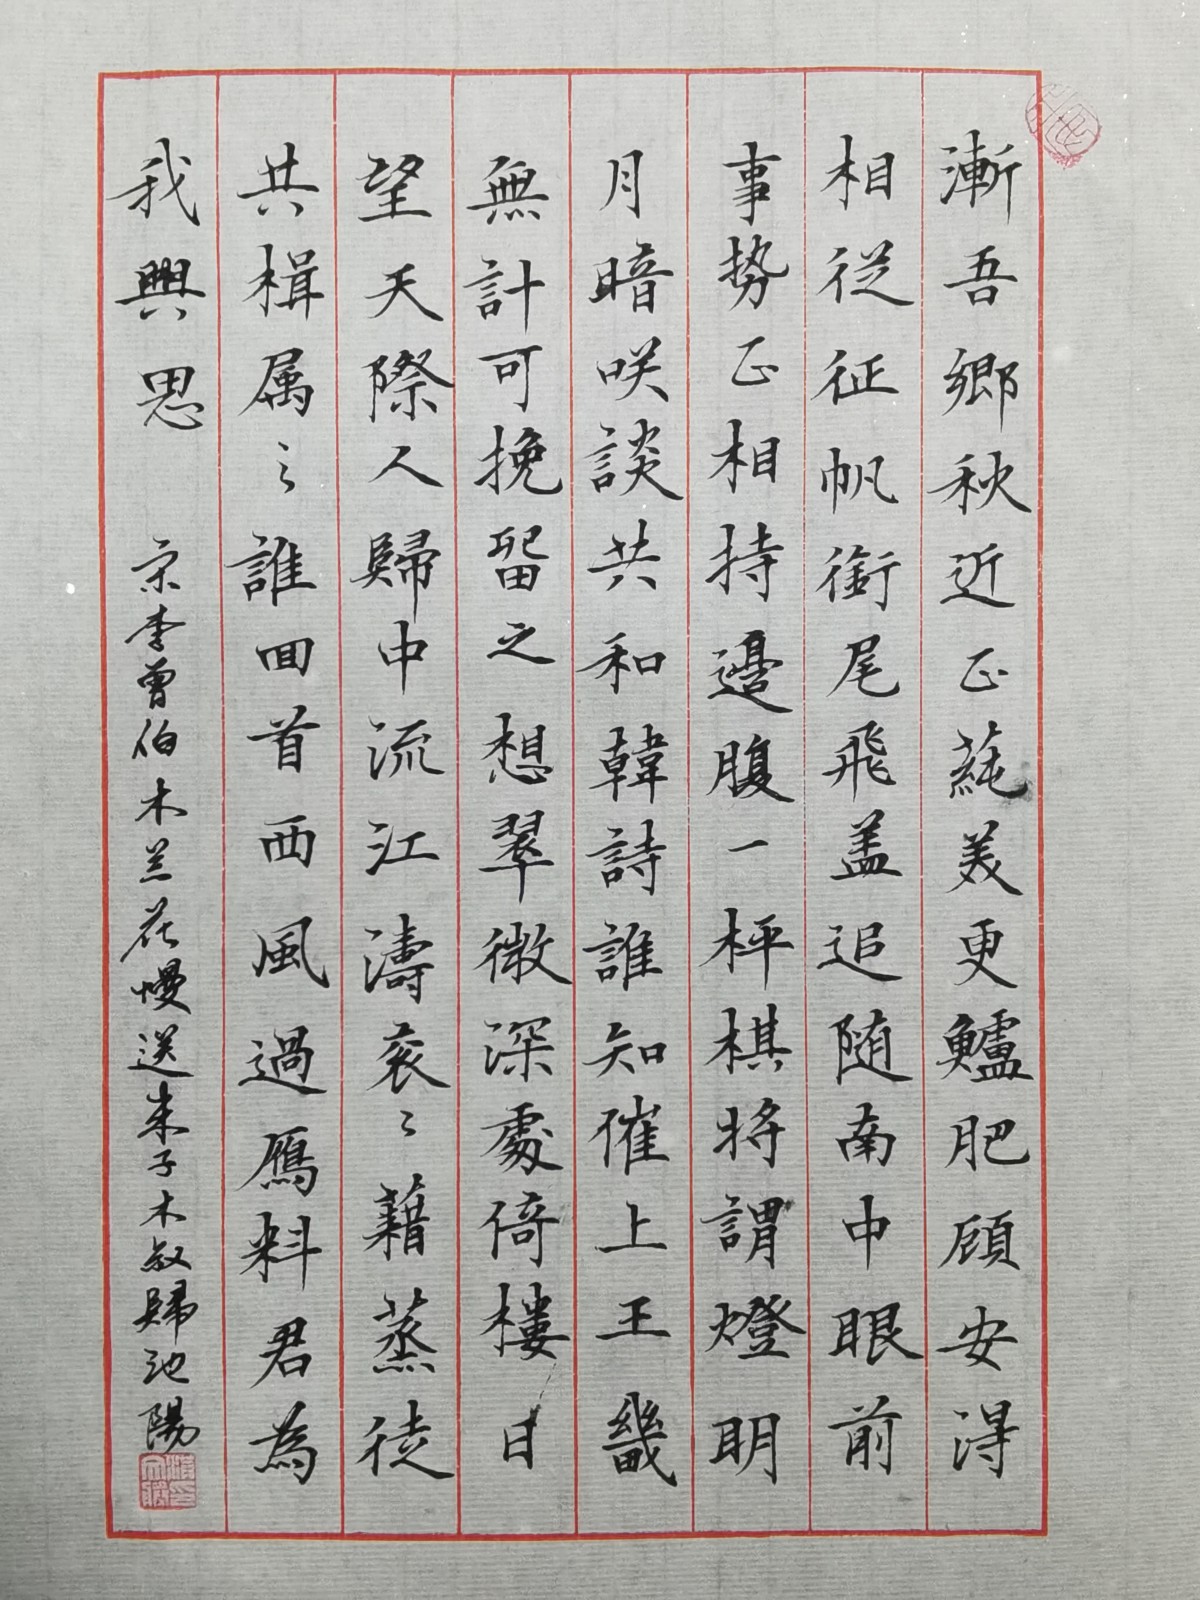 漸吾鄉秋近正蒓美更鱸肥顧安得
相從征帆銜尾飛盖追随南中眼前
事勢正相持邊腹一枰棋將謂燈明
月暗咲談共和韓詩誰知催上王畿
無計可挽留之想翠微深處倚樓日
望天際人歸中流江濤衮〻藉蒸徒
共楫属〻誰回首西風過鴈料君為
我興思
宋李曾伯木兰花慢送朱子木叔歸池陽